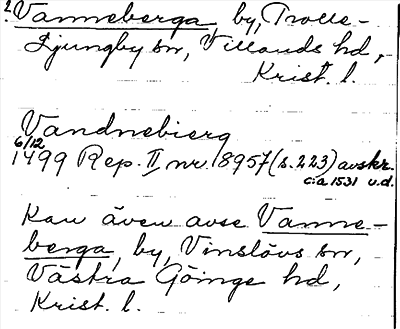 2. Vanneberga by, Trolle-
Ljungby sn, Villands hd,
Krist. l.
Vandnebierg
6/12
1499 Rep. II nr. 8957 (s. 223) avskr.
c:a 1531 u.d.
Kan även avse Vanne-
berga, by, Vinslövs sn,
Västra Göinge hd,
Krist. l.